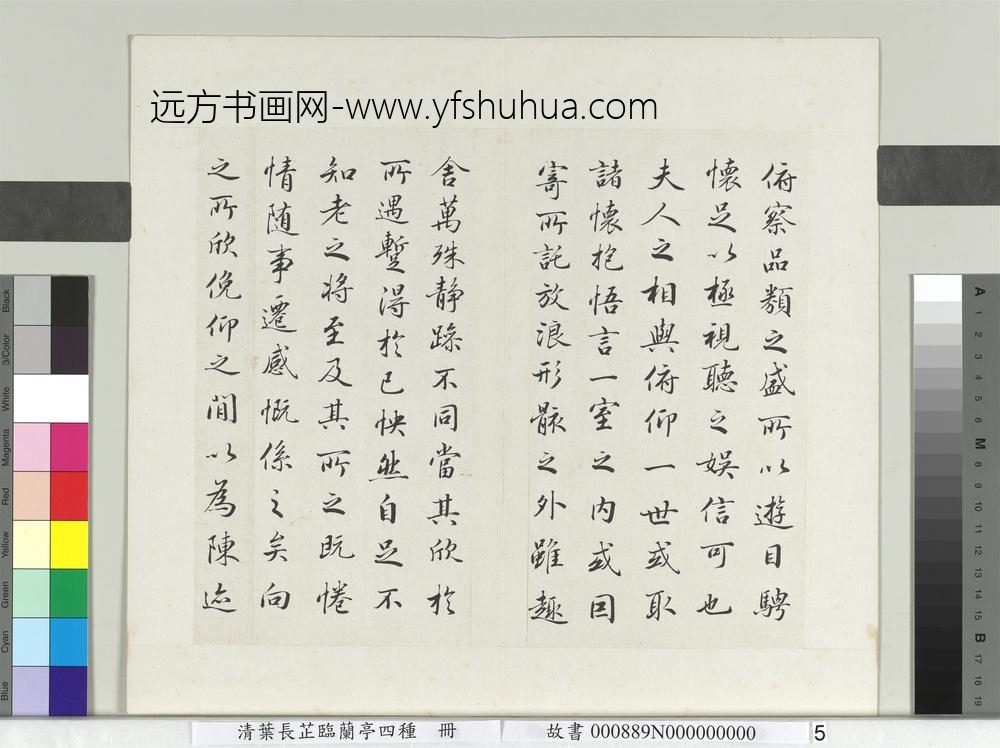 远方书画网-www.yfshuhua.com
俯察品類之盛所以遊目騁
懷足以極視聽之娛信可也
夫人之相與俯仰一世或取
諸懷抱悟言一室之內或因
寄所託放浪形骸之外雖趣
舍萬殊静躁不同當其欣於
所遇蹔得於己怏然自足不
知老之将至及其所之既惓
情随事遷感慨係之矣向
之所欣俛仰之閒以為陳迹
Black
3/Color
White
Magenta
Red
Yellow
Green
Cyan
Blue
A 1 2 3 4 5 6 M 8 9 10 11 12 13 14 15 B 17 18 19
清葉長芷臨蘭亭四種 冊
故書 000889N000000000
5